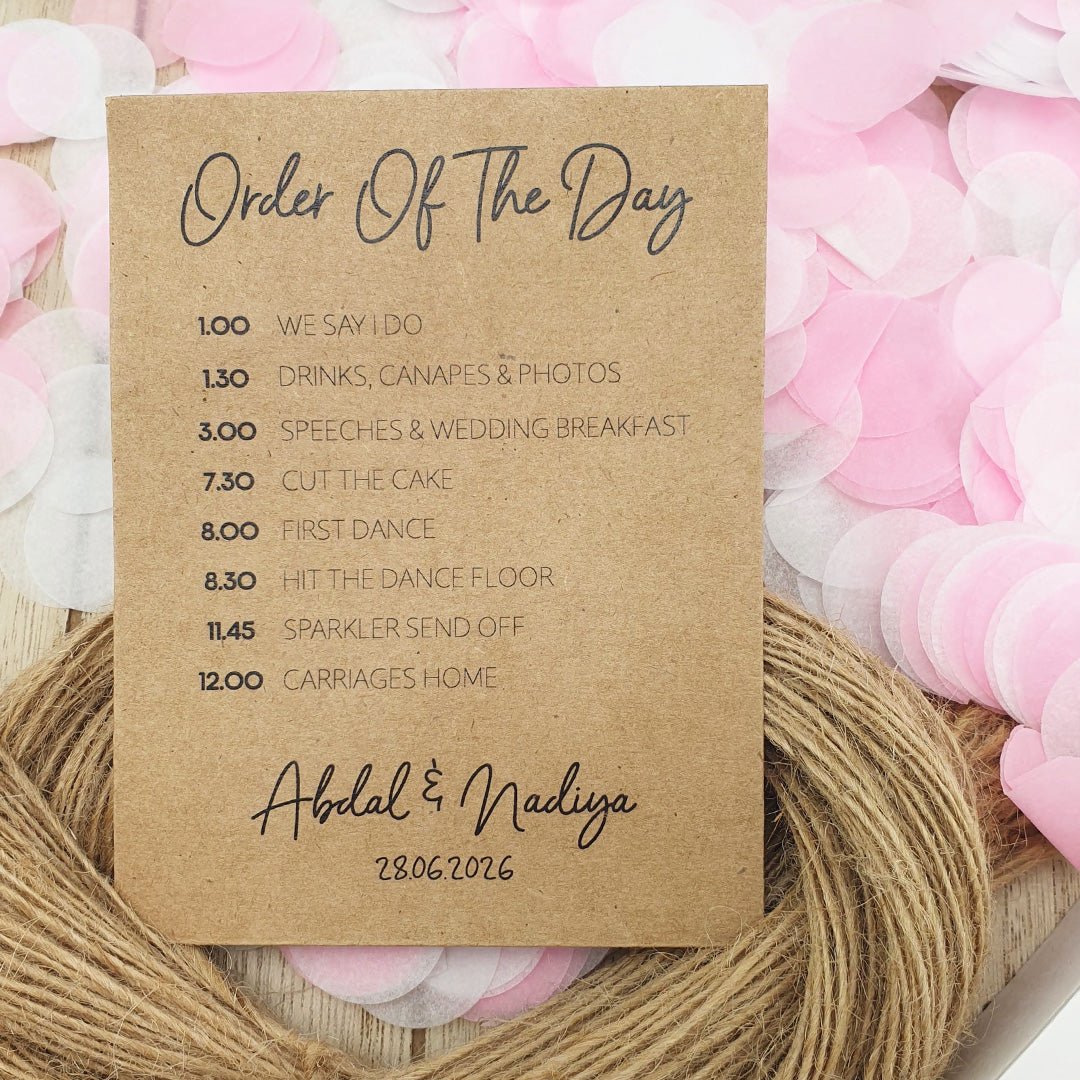 Order Of The Day
1.00 WE SAY I DO
1.30 DRINKS, CANAPES & PHOTOS
3.00 SPEECHES & WEDDING BREAKFAST
7.30 CUT THE CAKE
8.00 FIRST DANCE
8.30 HIT THE DANCE FLOOR
11.45 SPARKLER SEND OFF
12.00 CARRIAGES HOME
Abdal & Nadiya
28.06.2026